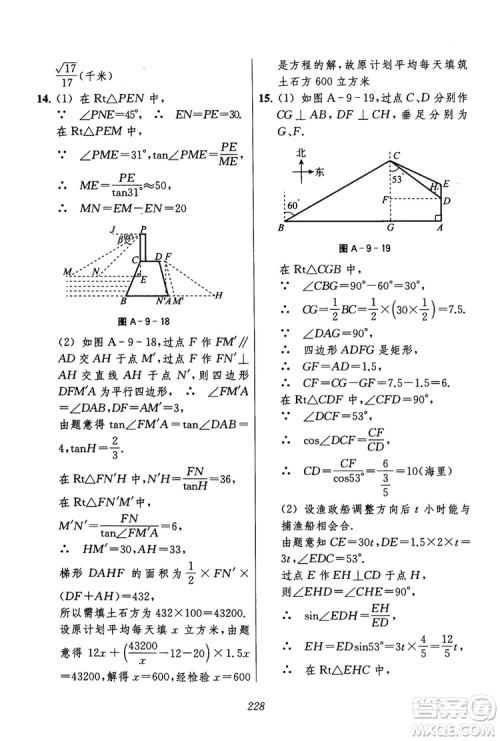 √17/17(千米)
14. (1) 在 Rt△PEN 中，
∵ ∠PNE=45°， ∴ EN=PE=30.
在 Rt△PEM 中，
∵ ∠PME=31°，tan∠PME=PE/ME
∴ ME=PE/tan31°≈50，
∴ MN=EM−EN=20
J P
β α
M N C D F
E
B A N′ M′ H
图 A-9-18
(2) 如图 A-9-18，过点 F 作 FM′∥
AD 交 AH 于点 M′，过点 F 作 FN′⊥
AH 交直线 AH 于点 N′，则四边形
DFM′A 为平行四边形，
∴ ∠FM′A=∠DAB，DF=AM′=3.
由题意得 tan∠FM′A=tan∠DAB=
4，tanH=2/3.
在 Rt△FN′H 中，N′H=FN/tanH=36，
在 Rt△FN′M′ 中，
M′N′=FN/tan∠FM′A=6，
∴ HM′=30，AH=33，
梯形 DAHF 的面积为 1/2×
(DF+AH)=432，
所以需填土石方为 432×100=43200.
设原计划平均每天填 x 立方米，由题
意得 12x+(43200/x−12−20)×1.5x=
43200，解得 x=600，经检验 x=600
是方程的解，故原计划平均每天填筑
土石方 600 立方米
15. (1) 如图 A-9-19，过点 C、D 分别作
CG⊥AB，DF⊥CG，垂足分别为
G、F.
北
东
C
53°
E
F D
60°
B G A
图 A-9-19
在 Rt△CGB 中，
∵ ∠CBG=90°−60°=30°，
∴ CG=1/2BC=1/2×(30×1/2)=7.5.
∵ ∠DAG=90°，
∴ 四边形 ADFG 是矩形，
∴ GF=AD=1.5，
∴ CF=CG−GF=7.5−1.5=6.
在 Rt△CDF 中，∠CFD=90°，
∵ ∠DCF=53°，
∴ cos∠DCF=CF/CD，
∴ CD=CF/cos53°=6/(3/5)=10(海里)
(2) 设渔政船调整方向后 t 小时能与
捕渔船相会合.
由题意知 CE=30t，DE=1.5×2×t=
3t，∠EDC=53°.
过点 E 作 EH⊥CD 于点 H，则
∠EHD=∠CHE=90°，
∴ sin∠EDH=EH/ED，
∴ EH=EDsin53°=3t×4/5=12/5t，
∴ 在 Rt△EHC 中，
228